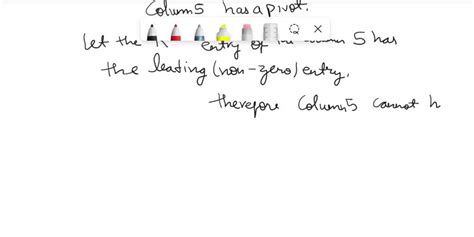 Column 5 has a pivot.
Let the entry of column 5 has
the leading (non-zero) entry.
therefore column 5 cannot h